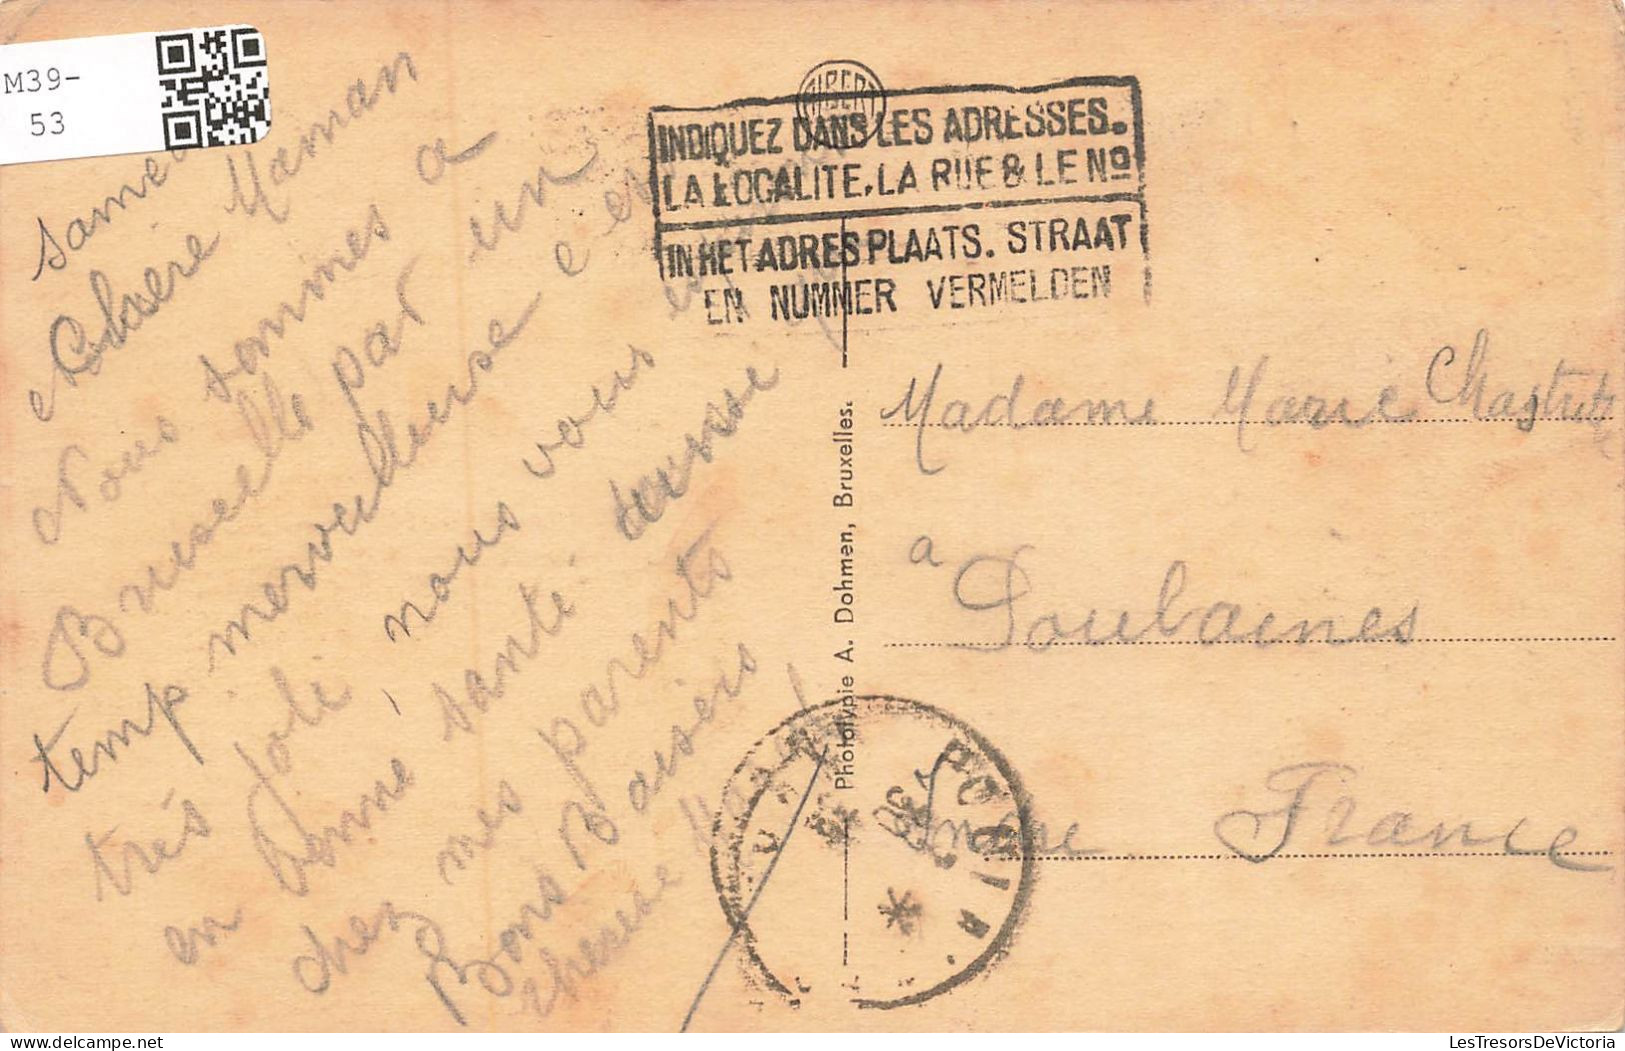 M39-
53
samedi
Chère Maman
Nous sommes a
Bruxelle par un
temp merveilleuse c'est
très joli nous vous
en bonne santé
chez mes parents
Bons Baisers
ALBERT
INDIQUEZ DANS LES ADRESSES.
LA LOCALITE, LA RUE & LE No
IN HET ADRES PLAATS. STRAAT
EN NUMMER VERMELDEN
Phototypie A. Dohmen, Bruxelles.
Madame Marie
a
Poulaines
Indre France
LesTresorsDeVictoria - delcampe.net